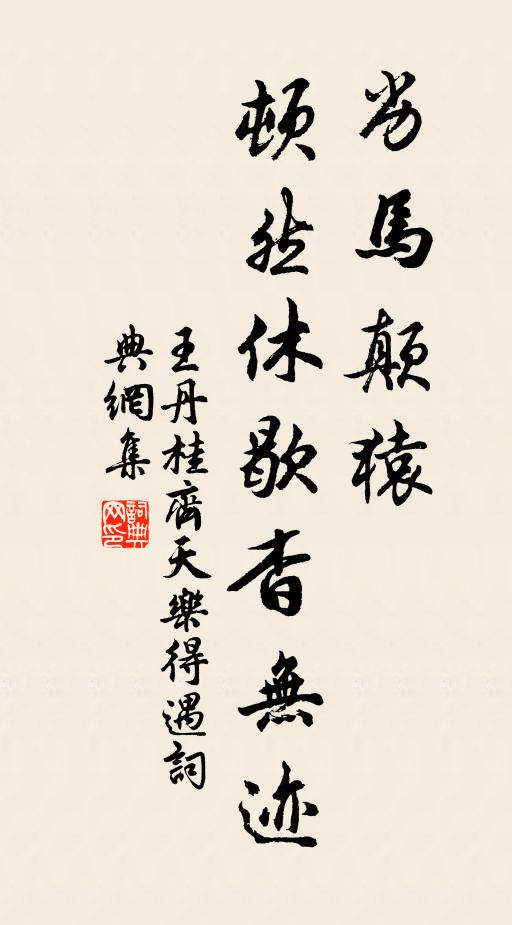 劣馬顛猿
頓然休歇杳無迹
王丹桂齊天樂得遇詞
典網集
詞典网印